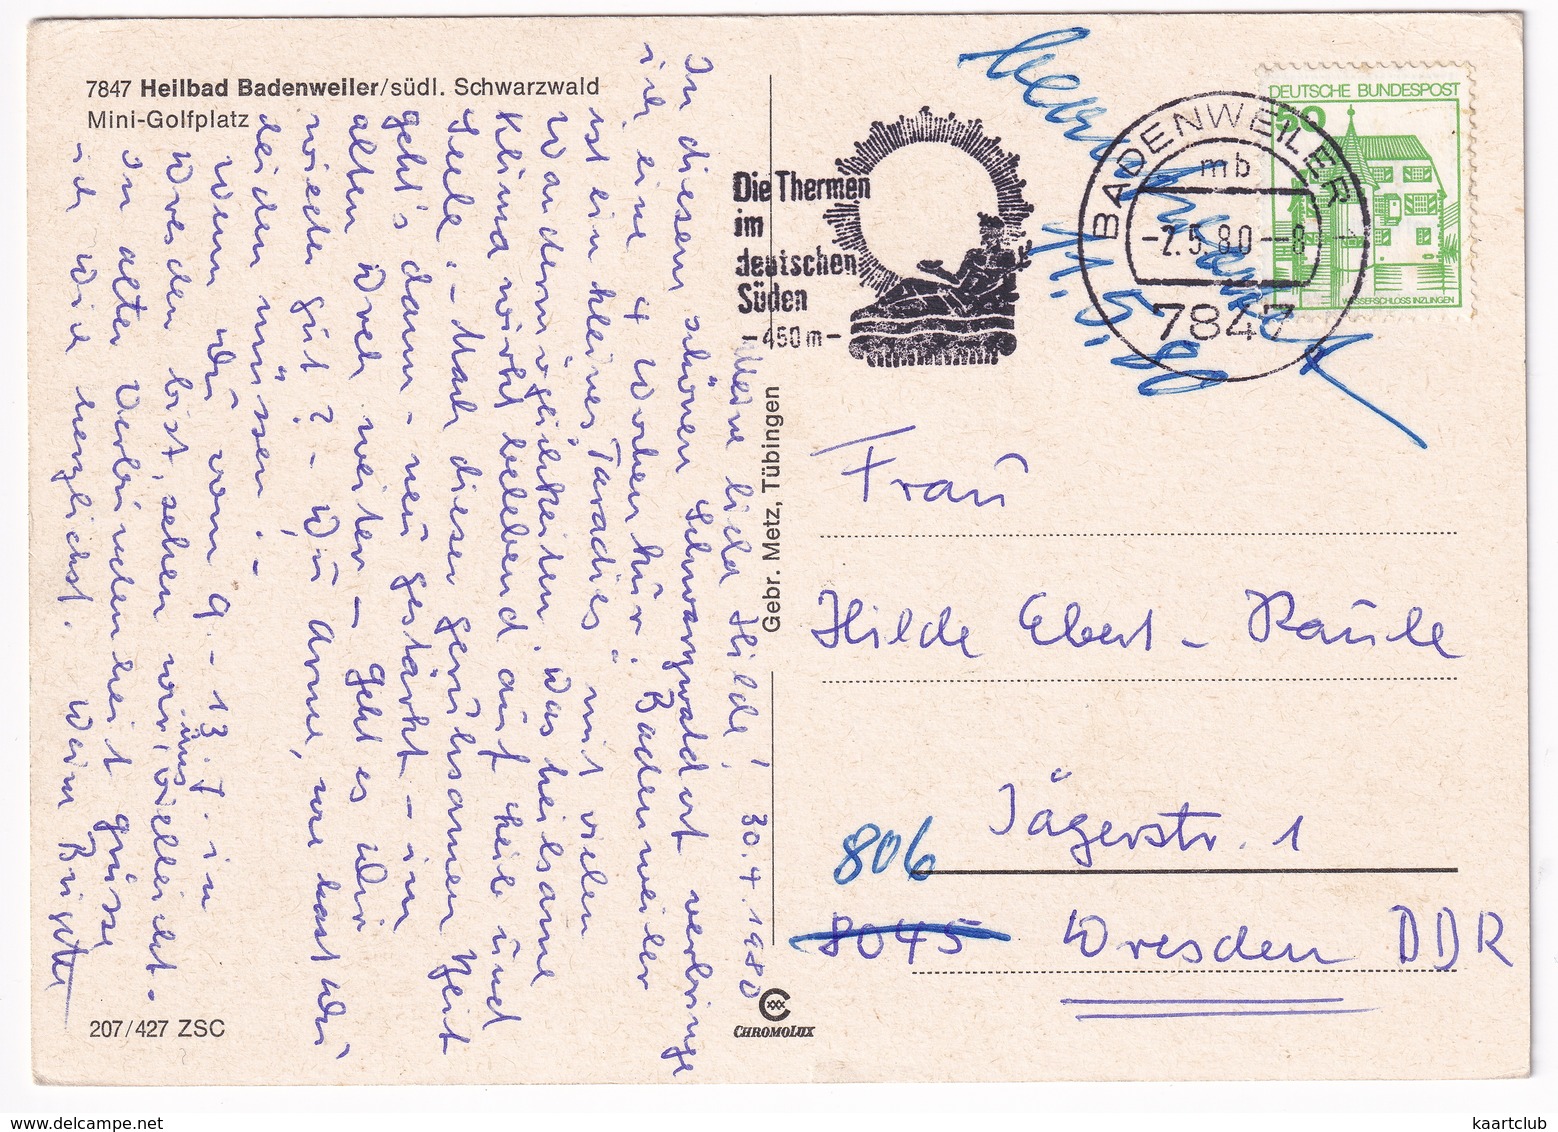 7847 Heilbad Badenweiler/südl. Schwarzwald
Mini-Golfplatz
Meine liebe Hilde! 30.4.1980
In diesem schönen Schwarzwaldort verbringe
ich eine 4 Wochenkur. Badenweiler
ist ein kleines Paradies mit vielen
Wandermöglichkeiten. Das heilsame
Klima wirkt belebend auf Leib und
Seele. - Nach dieser geruhsamen Zeit
geht's dann - neu gestärkt - im
alten weiter - geht es Dir
wieder gut? - Du Arme, was hast Du
leiden müssen! -
Wenn Du vom 9. - 13.7. in
Dresden bist, sehen wir uns vielleicht.
In alter Verbundenheit grüsse
ich Dich herzlichst. Deine Brigitte
207/427 ZSC
Gebr. Metz, Tübingen
CHROMOLUX
Die Thermen
im
deutschen
Süden
-450m-
BADENWEILER 1
mb
-2.5.80--8
7847
DEUTSCHE BUNDESPOST
50
WASSERSCHLOSS INZLINGEN
11.5.80
Frau
Hilde Ebert-Räule
Jägerstr. 1
806
8045 Dresden DDR
kaartclub